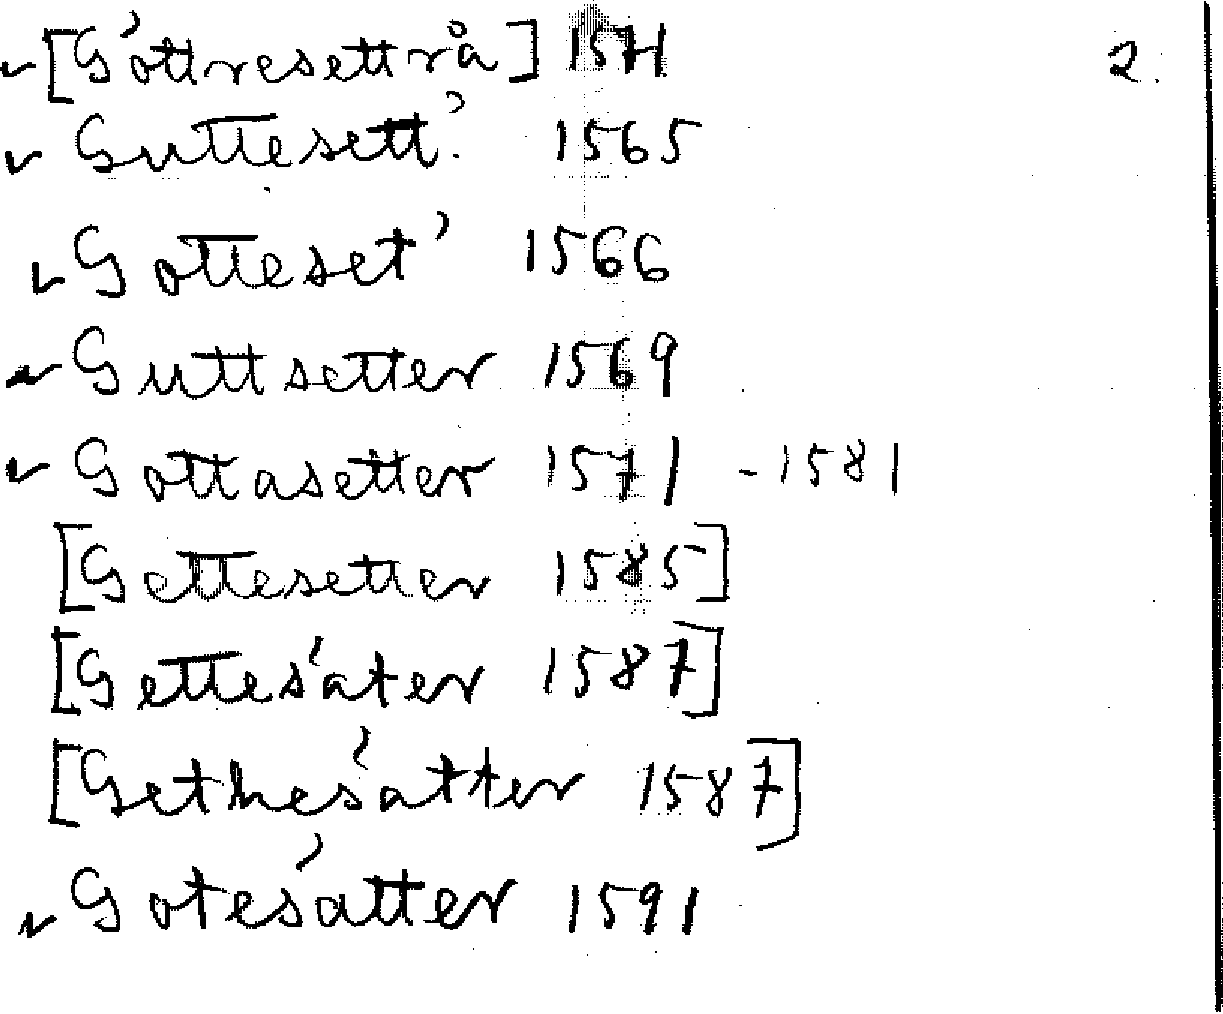 ✓ [Góttresettrå] 1571 2.
✓ Guttesett' 1565
✓ Gotteset' 1566
✓ Guttsetter 1569
✓ Gottasetter 1571 - 1581
[Gettesetter 1585]
[Gettesa'ter 1587]
[Gethesa'tter 1587]
✓ Gotesa'tter 1591